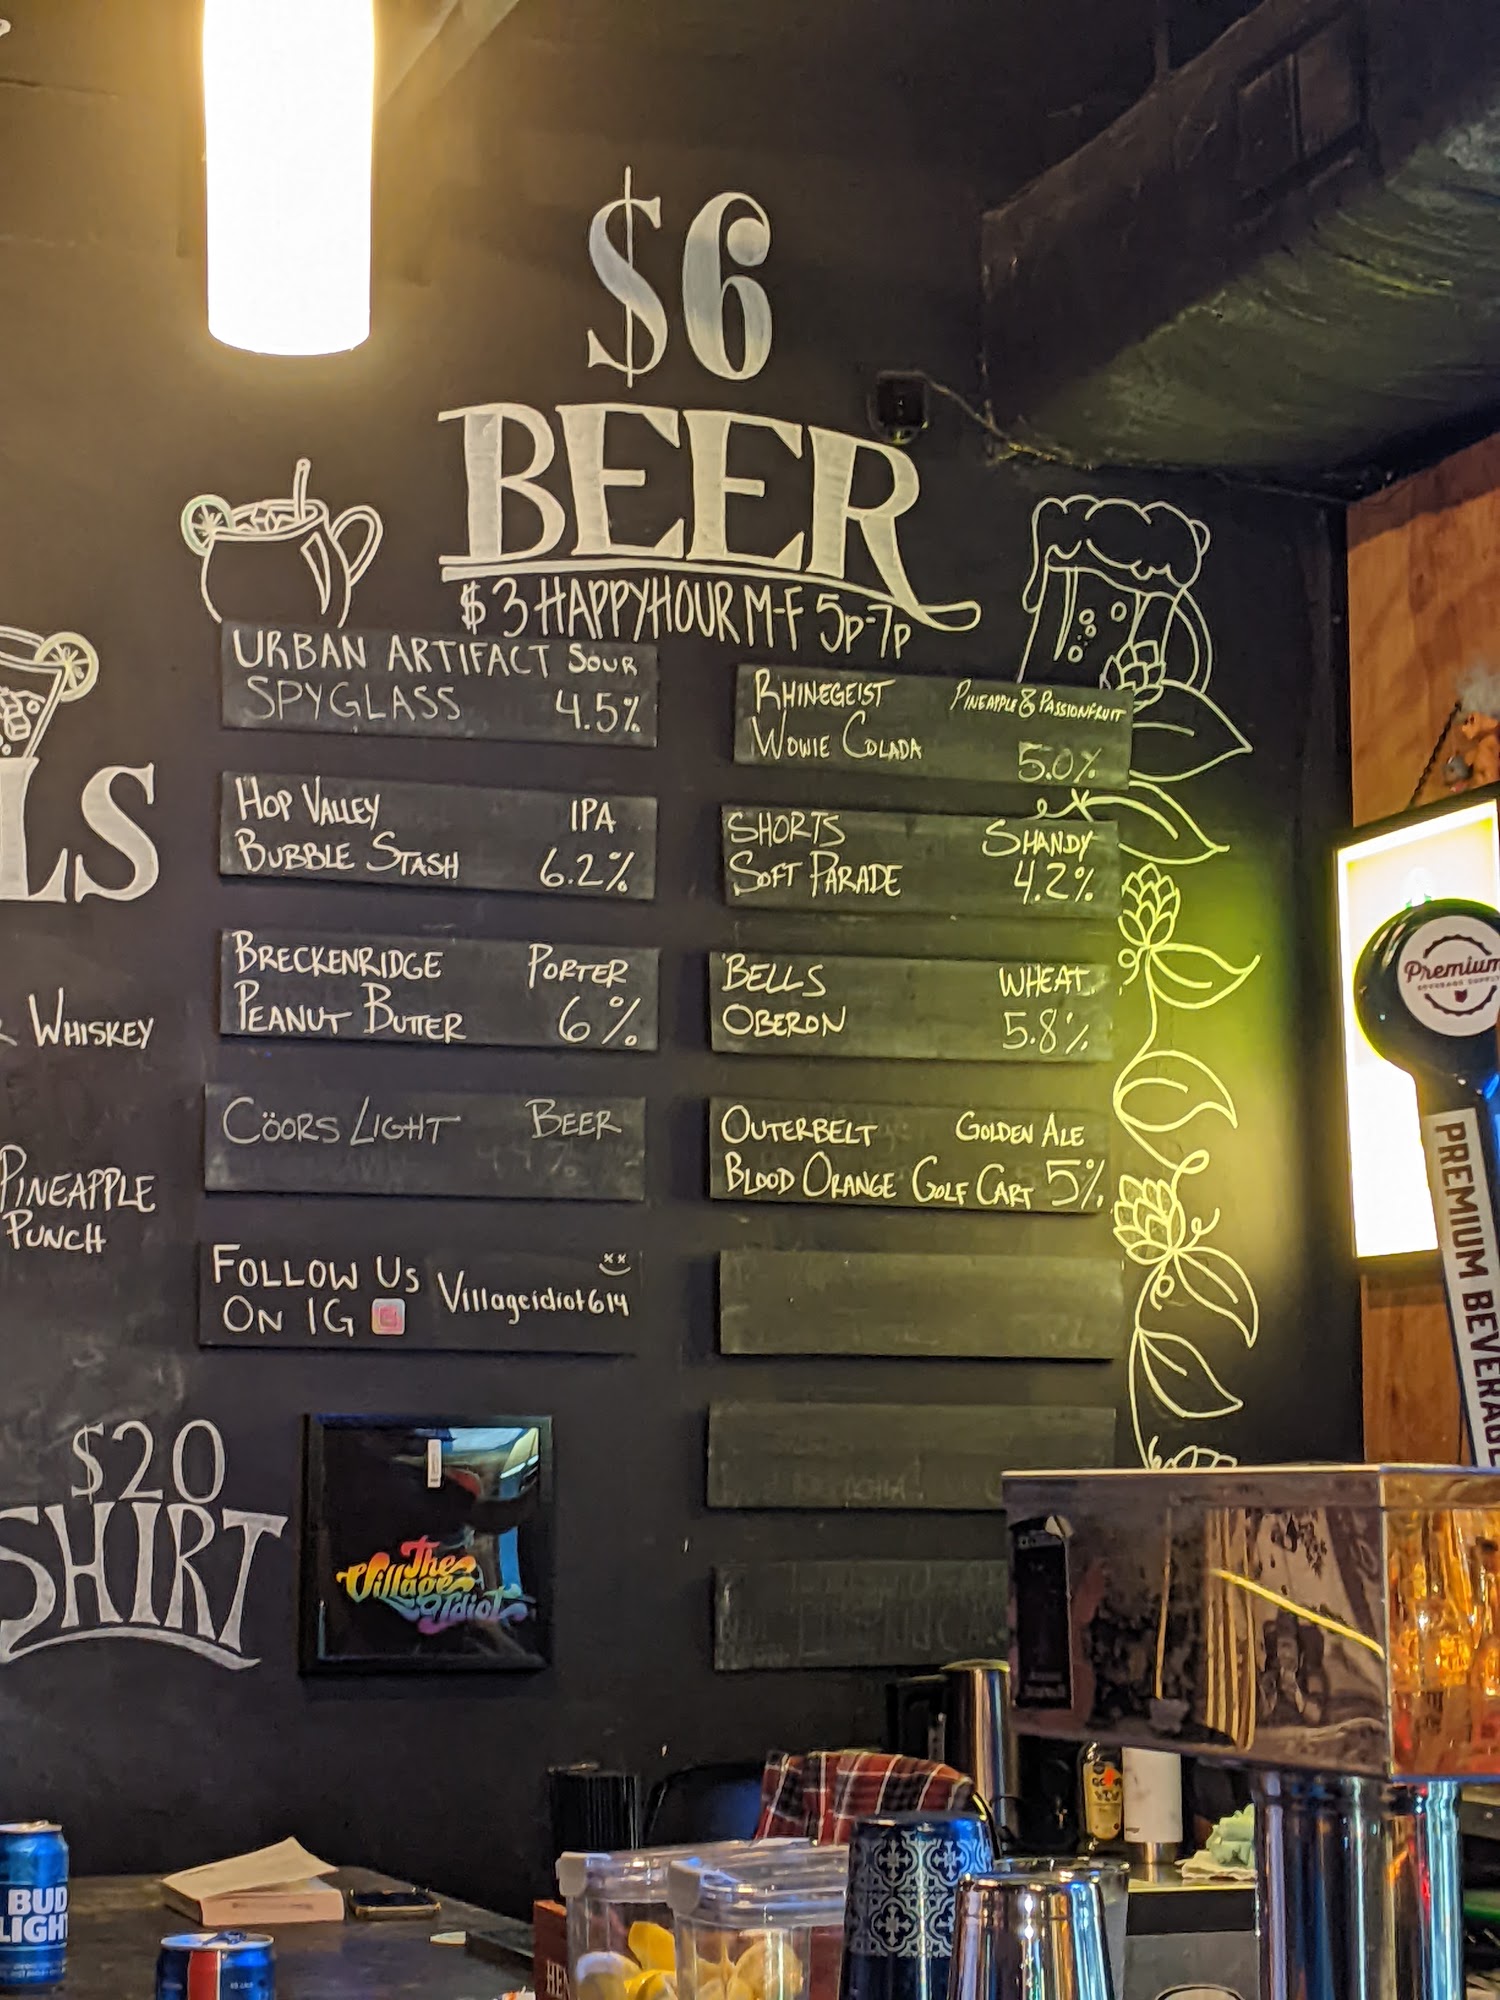 $6
BEER
$3 HAPPY HOUR M-F 5P-7P
URBAN ARTIFACT SOUR
SPYGLASS 4.5%
HOP VALLEY IPA
BUBBLE STASH 6.2%
BRECKENRIDGE PORTER
PEANUT BUTTER 6%
CÖORS LIGHT BEER
FOLLOW US
ON IG Villageidiot614
RHINEGEIST PINEAPPLE & PASSIONFRUIT
WOWIE COLADA 5.0%
SHORTS SHANDY
SOFT PARADE 4.2%
BELLS WHEAT
OBERON 5.8%
OUTERBELT GOLDEN ALE
BLOOD ORANGE GOLF CART 5%
LS
WHISKEY
PINEAPPLE
PUNCH
$20
SHIRT
The
Village
Idiot
Premium
BEVERAGE SUPPLY
PREMIUM BEVERAGE
BUD
LIGHT
HEN